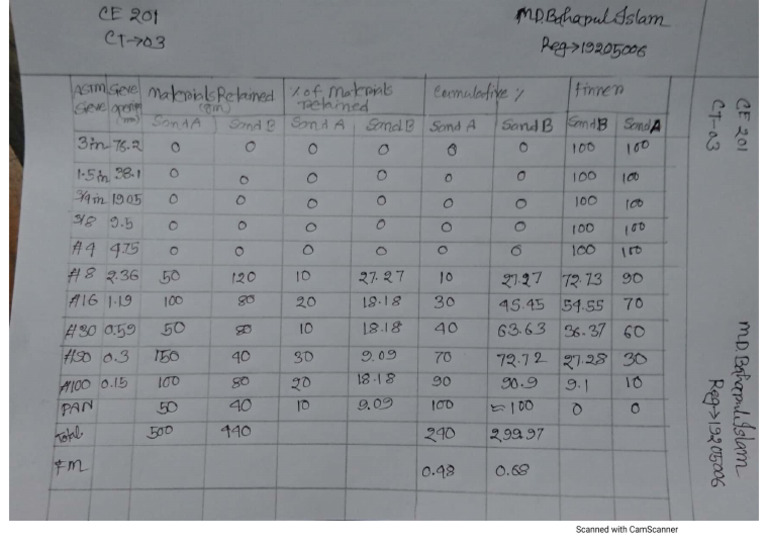 CE 201
CT→03
MD.Bahapul Islam
Reg→19205006
ASTM Sieve Materials Retained % of materials Cumulative % Finner
Sieve opening (mm) (gm) retained
Sand A Sand B Sand A Sand B Sand A Sand B Sand B Sand A
3in 76.2 0 0 0 0 0 0 100 100
1.5in 38.1 0 0 0 0 0 0 100 100
3/4in 19.05 0 0 0 0 0 0 100 100
3/8 9.5 0 0 0 0 0 0 100 100
#4 4.75 0 0 0 0 0 0 100 100
#8 2.36 50 120 10 27.27 10 27.27 72.73 90
#16 1.19 100 80 20 18.18 30 45.45 54.55 70
#30 0.59 50 80 10 18.18 40 63.63 36.37 60
#50 0.3 150 40 30 9.09 70 72.72 27.28 30
#100 0.15 100 80 20 18.18 90 90.9 9.1 10
PAN 50 40 10 9.09 100 ≈100 0 0
Total 500 440 240 299.97
FM 0.48 0.68
CE 201
CT-03
MD.Bahapul Islam
Reg→19205006
Scanned with CamScanner